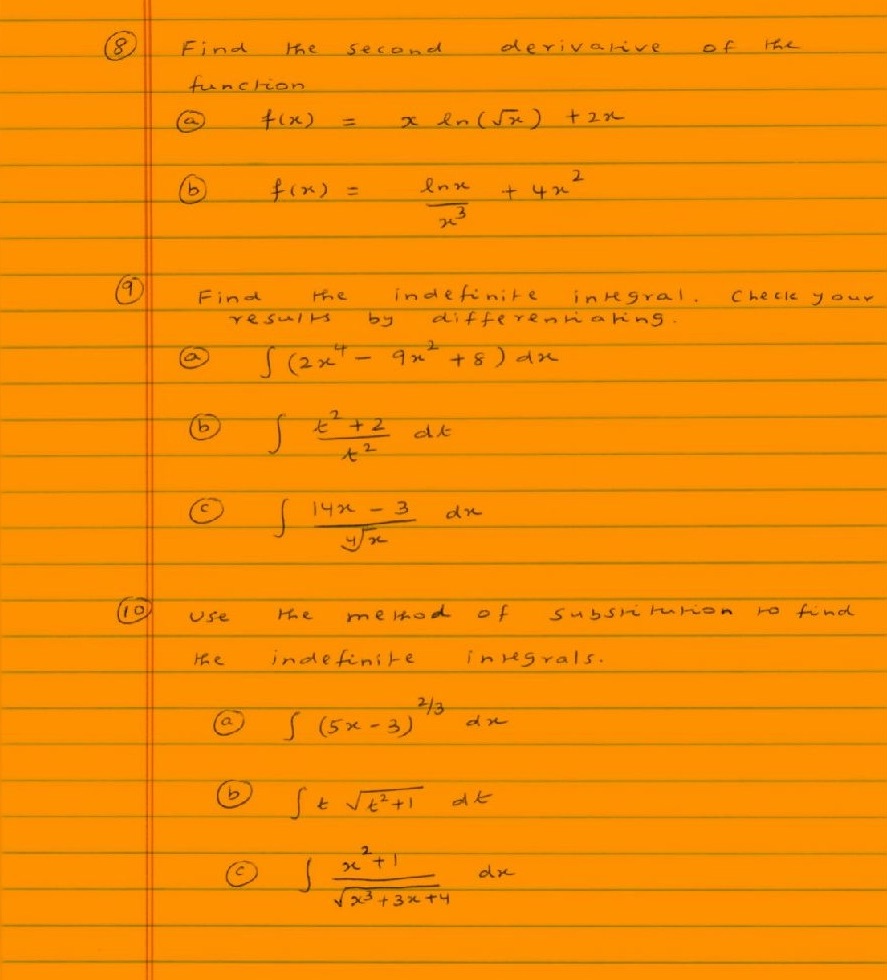 ⑧ Find the second derivative of the
function
ⓐ f(x) = x ln(√x) + 2x
ⓑ f(x) = lnx/x³ + 4x²
⑨ Find the indefinite integral. Check your
results by differentiating.
ⓐ ∫ (2x⁴ - 9x² + 8) dx
ⓑ ∫ (t² + 2)/t² dt
ⓒ ∫ (14x - 3)/⁴√x dx
⑩ Use the method of substitution to find
the indefinite integrals.
ⓐ ∫ (5x - 3)^(2/3) dx
ⓑ ∫ t √(t² + 1) dt
ⓒ ∫ (x² + 1)/√(x³ + 3x + 4) dx